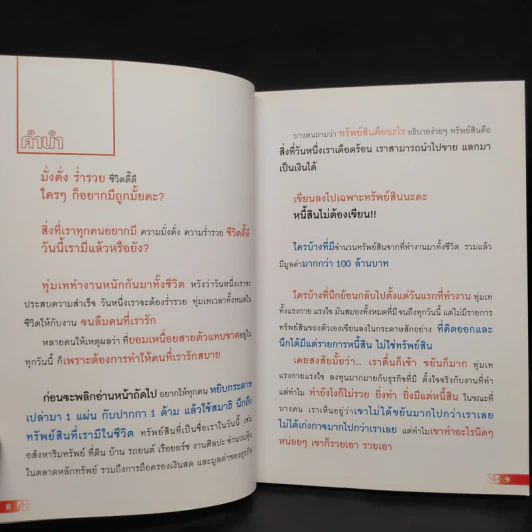 คำนำ
มั่งคั่ง ร่ำรวย ชีวิตดี๊ดี
ใครๆ ก็อยากมีถูกมั้ยคะ?
สิ่งที่เราทุกคนอยากมี ความมั่งคั่ง ความร่ำรวย ชีวิตดี๊ดี
วันนี้เรามีแล้วหรือยัง?
ทุ่มเททำงานหนักกันมาทั้งชีวิต หวังว่าวันหนึ่งเราจะ
ประสบความสำเร็จ วันหนึ่งเราจะต้องร่ำรวย ทุ่มเทเวลาทั้งหมดใน
ชีวิตให้กับงาน จนลืมคนที่เรารัก
หลายคนให้เหตุผลว่า ที่ยอมเหนื่อยสายตัวแทบขาดอยู่ใน
ทุกวันนี้ ก็เพราะต้องการทำให้คนที่เรารักสบาย
ก่อนจะพลิกอ่านหน้าถัดไป อยากให้ทุกคน หยิบกระดาษ
เปล่ามา 1 แผ่น กับปากกา 1 ด้าม แล้วใช้สมาธิ นึกถึง
ทรัพย์สินที่เรามีในชีวิต ทรัพย์สินที่เป็นชื่อเราในวันนี้ เช่น
อสังหาริมทรัพย์ ที่ดิน บ้าน รถยนต์ เรือยอร์ช งานศิลปะ จำนวนหุ้น
ในตลาดหลักทรัพย์ รวมถึงการถือครองเงินสด และมูลค่าของธุรกิจ
8
บางคนถามว่า ทรัพย์สินคืออะไร อธิบายง่ายๆ ทรัพย์สินคือ
สิ่งที่วันหนึ่งเราเดือดร้อน เราสามารถนำไปขาย แลกมา
เป็นเงินได้
เขียนลงไปเฉพาะทรัพย์สินนะคะ
หนี้สินไม่ต้องเขียน!!
ใครบ้างที่มีจำนวนทรัพย์สินจากที่ทำงานมาทั้งชีวิต รวมแล้ว
มีมูลค่ามากกว่า 100 ล้านบาท
ใครบ้างที่นึกย้อนกลับไปตั้งแต่วันแรกที่ทำงาน ทุ่มเท
ทั้งแรงกาย แรงใจ มันสมองทั้งหมดที่มีจนถึงทุกวันนี้ แต่ไม่มีรายการ
ทรัพย์สินของตัวเองเขียนลงในกระดาษสักอย่าง ที่คิดออกและ
นึกได้มีแต่รายการหนี้สิน ไม่ใช่ทรัพย์สิน
เคยสงสัยมั้ยว่า... เราตื่นก็เช้า ขยันก็มาก ทุ่มเท
แรงกายแรงใจ ลงทุนมากมายกับธุรกิจที่มี ตั้งใจจริงกับงานที่ทำ
แต่ทำไม ทำยังไงก็ไม่รวย ยิ่งทำ ยิ่งมีแต่หนี้สิน ในขณะที่
บางคน เราเห็นอยู่ว่าเขาไม่ได้ขยันมากไปกว่าเราเลย
ไม่ได้เก่งกาจมากไปกว่าเราเลย แต่ทำไมเขาทำอะไรนิดๆ
หน่อยๆ เขาก็รวยเอา รวยเอา
9